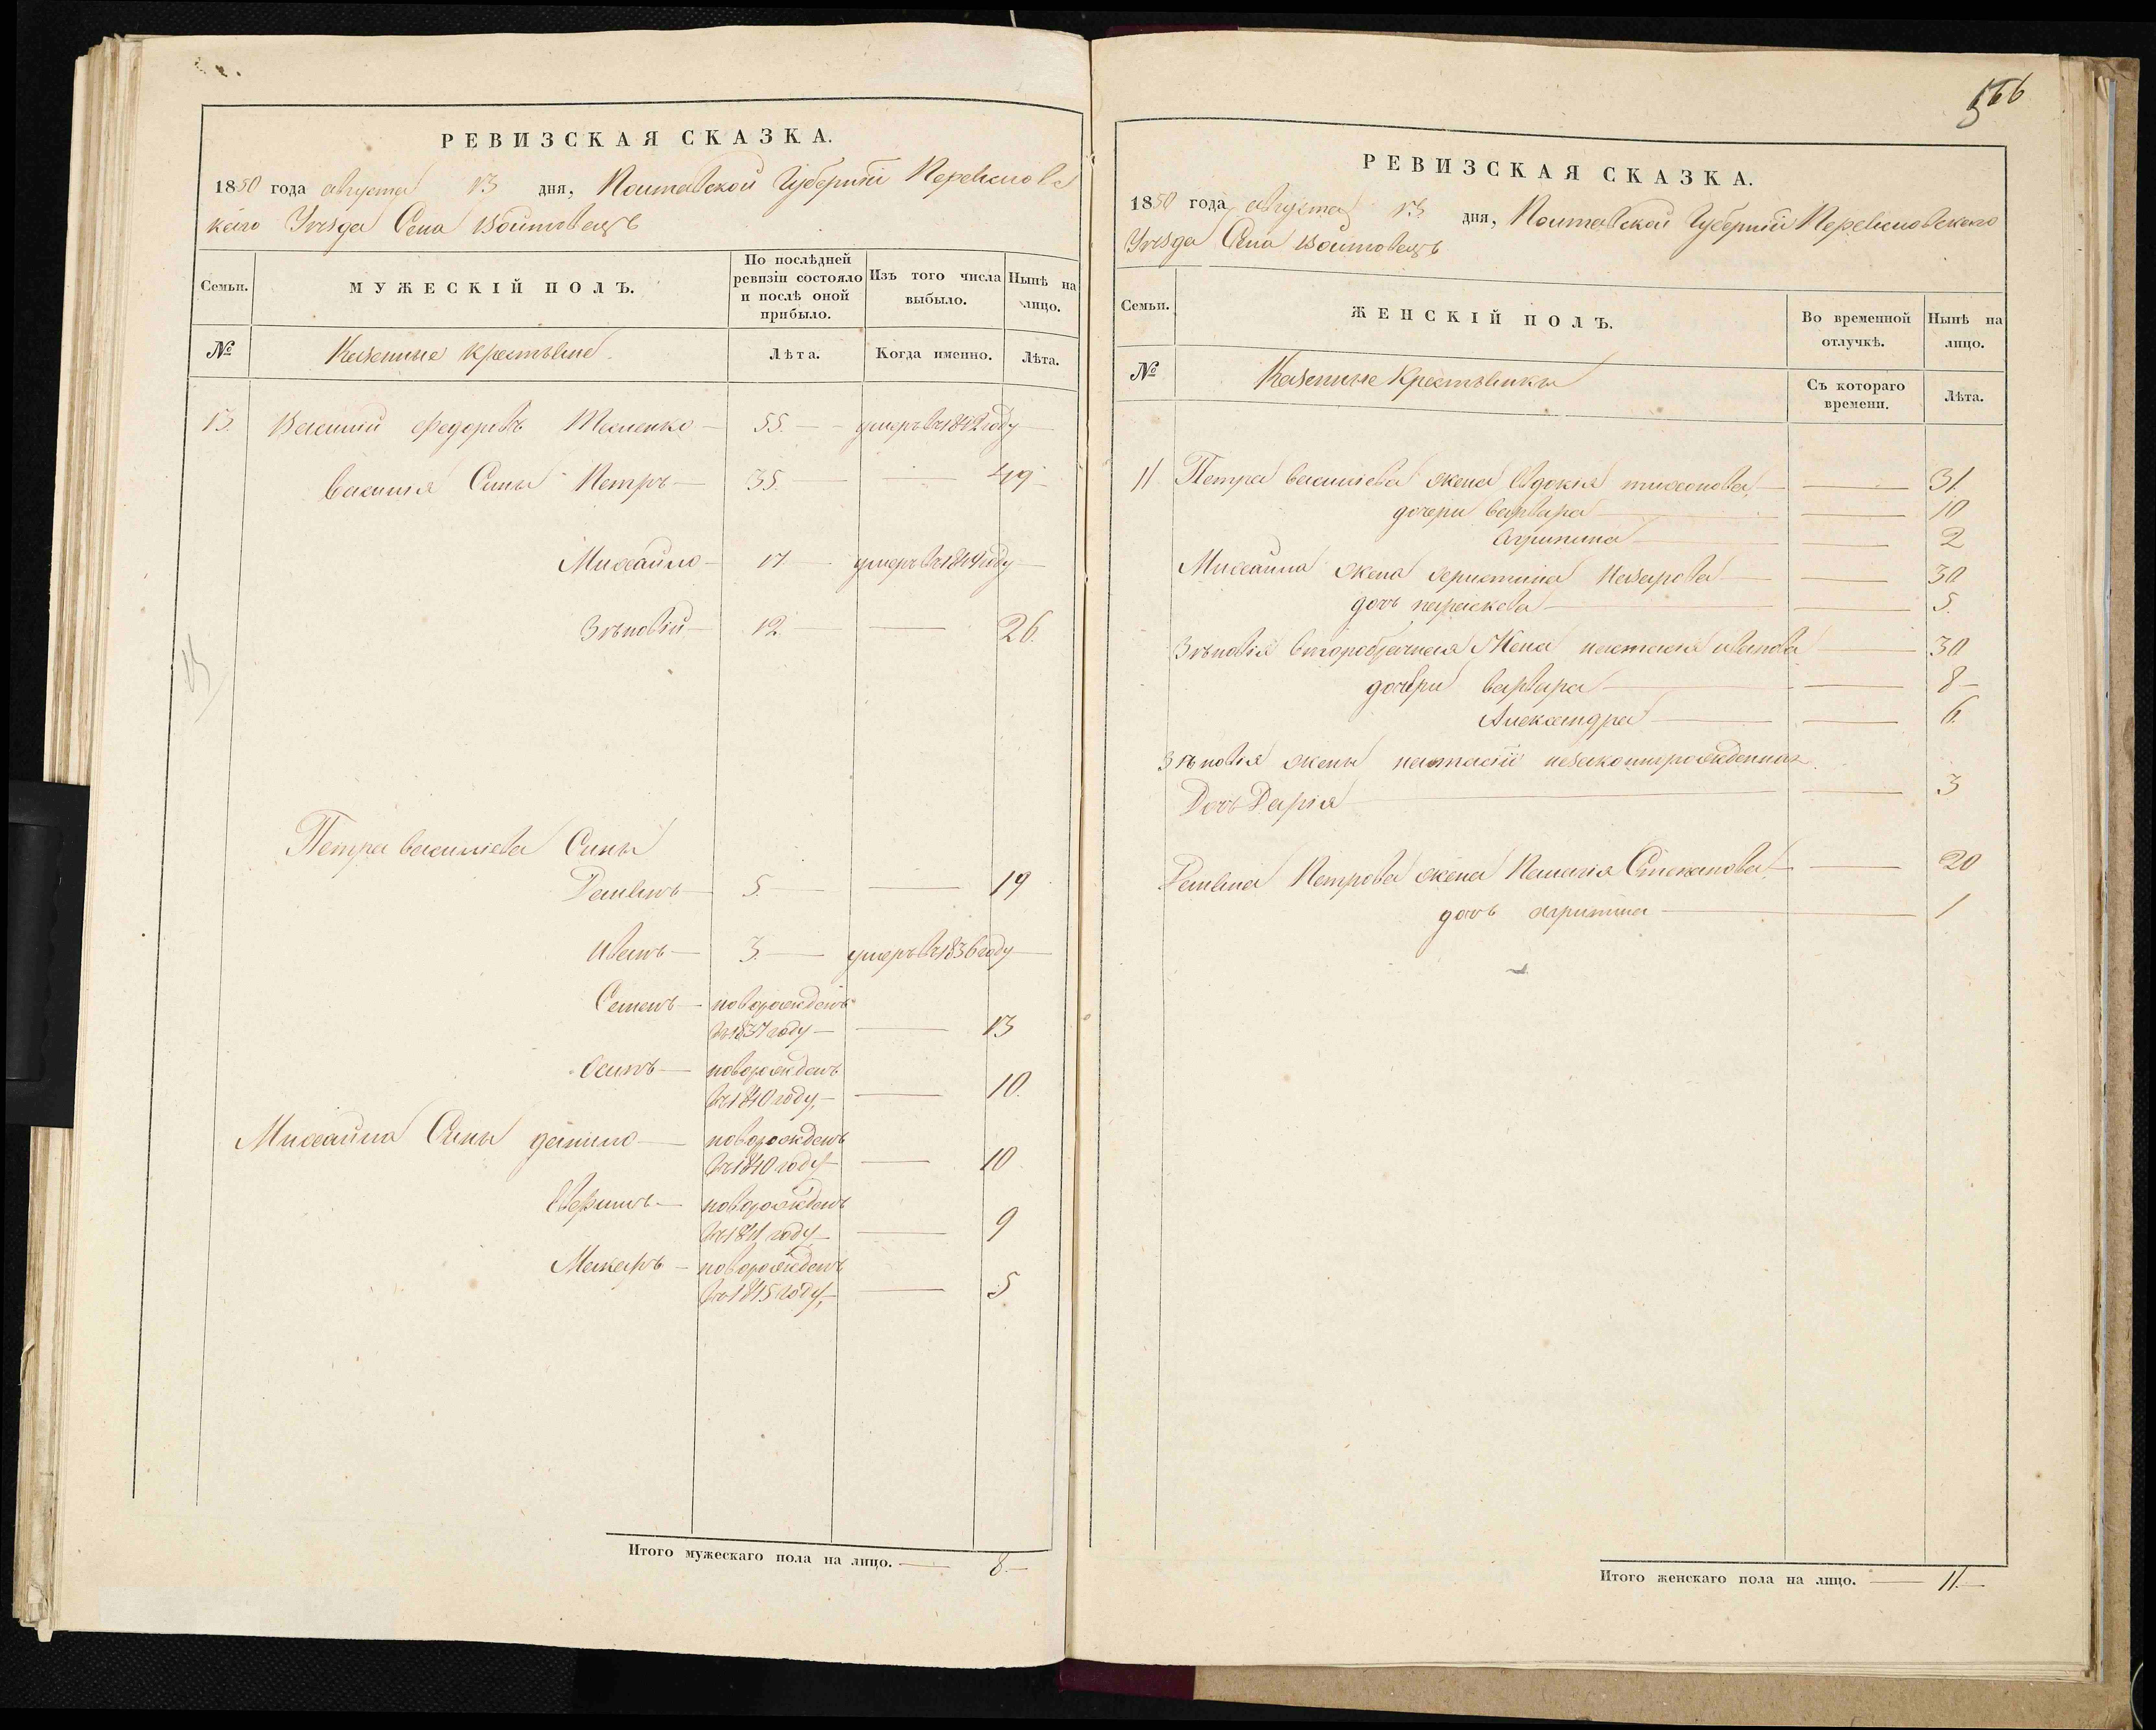 РЕВИЗСКАЯ СКАЗКА.
1850 года августа 13 дня, Полтавской Губерніи Переяслов
скаго Уѣзда Села Войтовецъ
Семьи.
МУЖЕСКІЙ ПОЛЪ.
По послѣдней
ревизіи состояло
и послѣ оной
прибыло.
Изъ того числа
выбыло.
Нынѣ на
лицо.
№
Казенные крестьяне
Лѣта.
Когда именно.
Лѣта.
13. Василій Федоровъ 55. умеръ въ 1842 году
василія Сыны Петръ 35. 49
Михайло 17 умеръ въ 1849 году
Зѣновій 12. 26.
13
Петра василіева Сыны
Демянъ 5. 19
Иванъ 3. умеръ въ 1836 году
Семенъ новорожденъ
въ 1837 году 13
Осипъ новорожденъ
въ 1840 году, 10.
Михайла Сыны данило новорожденъ
въ 1840 году 10
новорожденъ
въ 1841 году 9
Макаръ новорожденъ
въ 1845 году, 5
Итого мужескаго пола на лицо. 8.
566
РЕВИЗСКАЯ СКАЗКА.
1850 года августа 13 дня, Полтавской Губерніи Переясловскаго
Уѣзда Села Войтовецъ
Семьи.
ЖЕНСКІЙ ПОЛЪ.
Во временной
отлучкѣ.
Нынѣ на
лицо.
№
Казенные Крестьянки
Съ котораго
времени.
Лѣта.
Петра василіева жена Евдокія тихонова 31.
дочери варвара 10
Агрипина 2
Михайла жена христина Назарова 30
дочь параскева 5.
Зѣновія второбрачная Жена настасія иванова 30
дочери варвара 8
Александра 6.
Зѣновія жены настасіи незаконнорожденная
Дочь Дарія 3
Демяна Петрова жена Пелагія Степанова 20
дочь агрипина 1
Итого женскаго пола на лицо. 11.